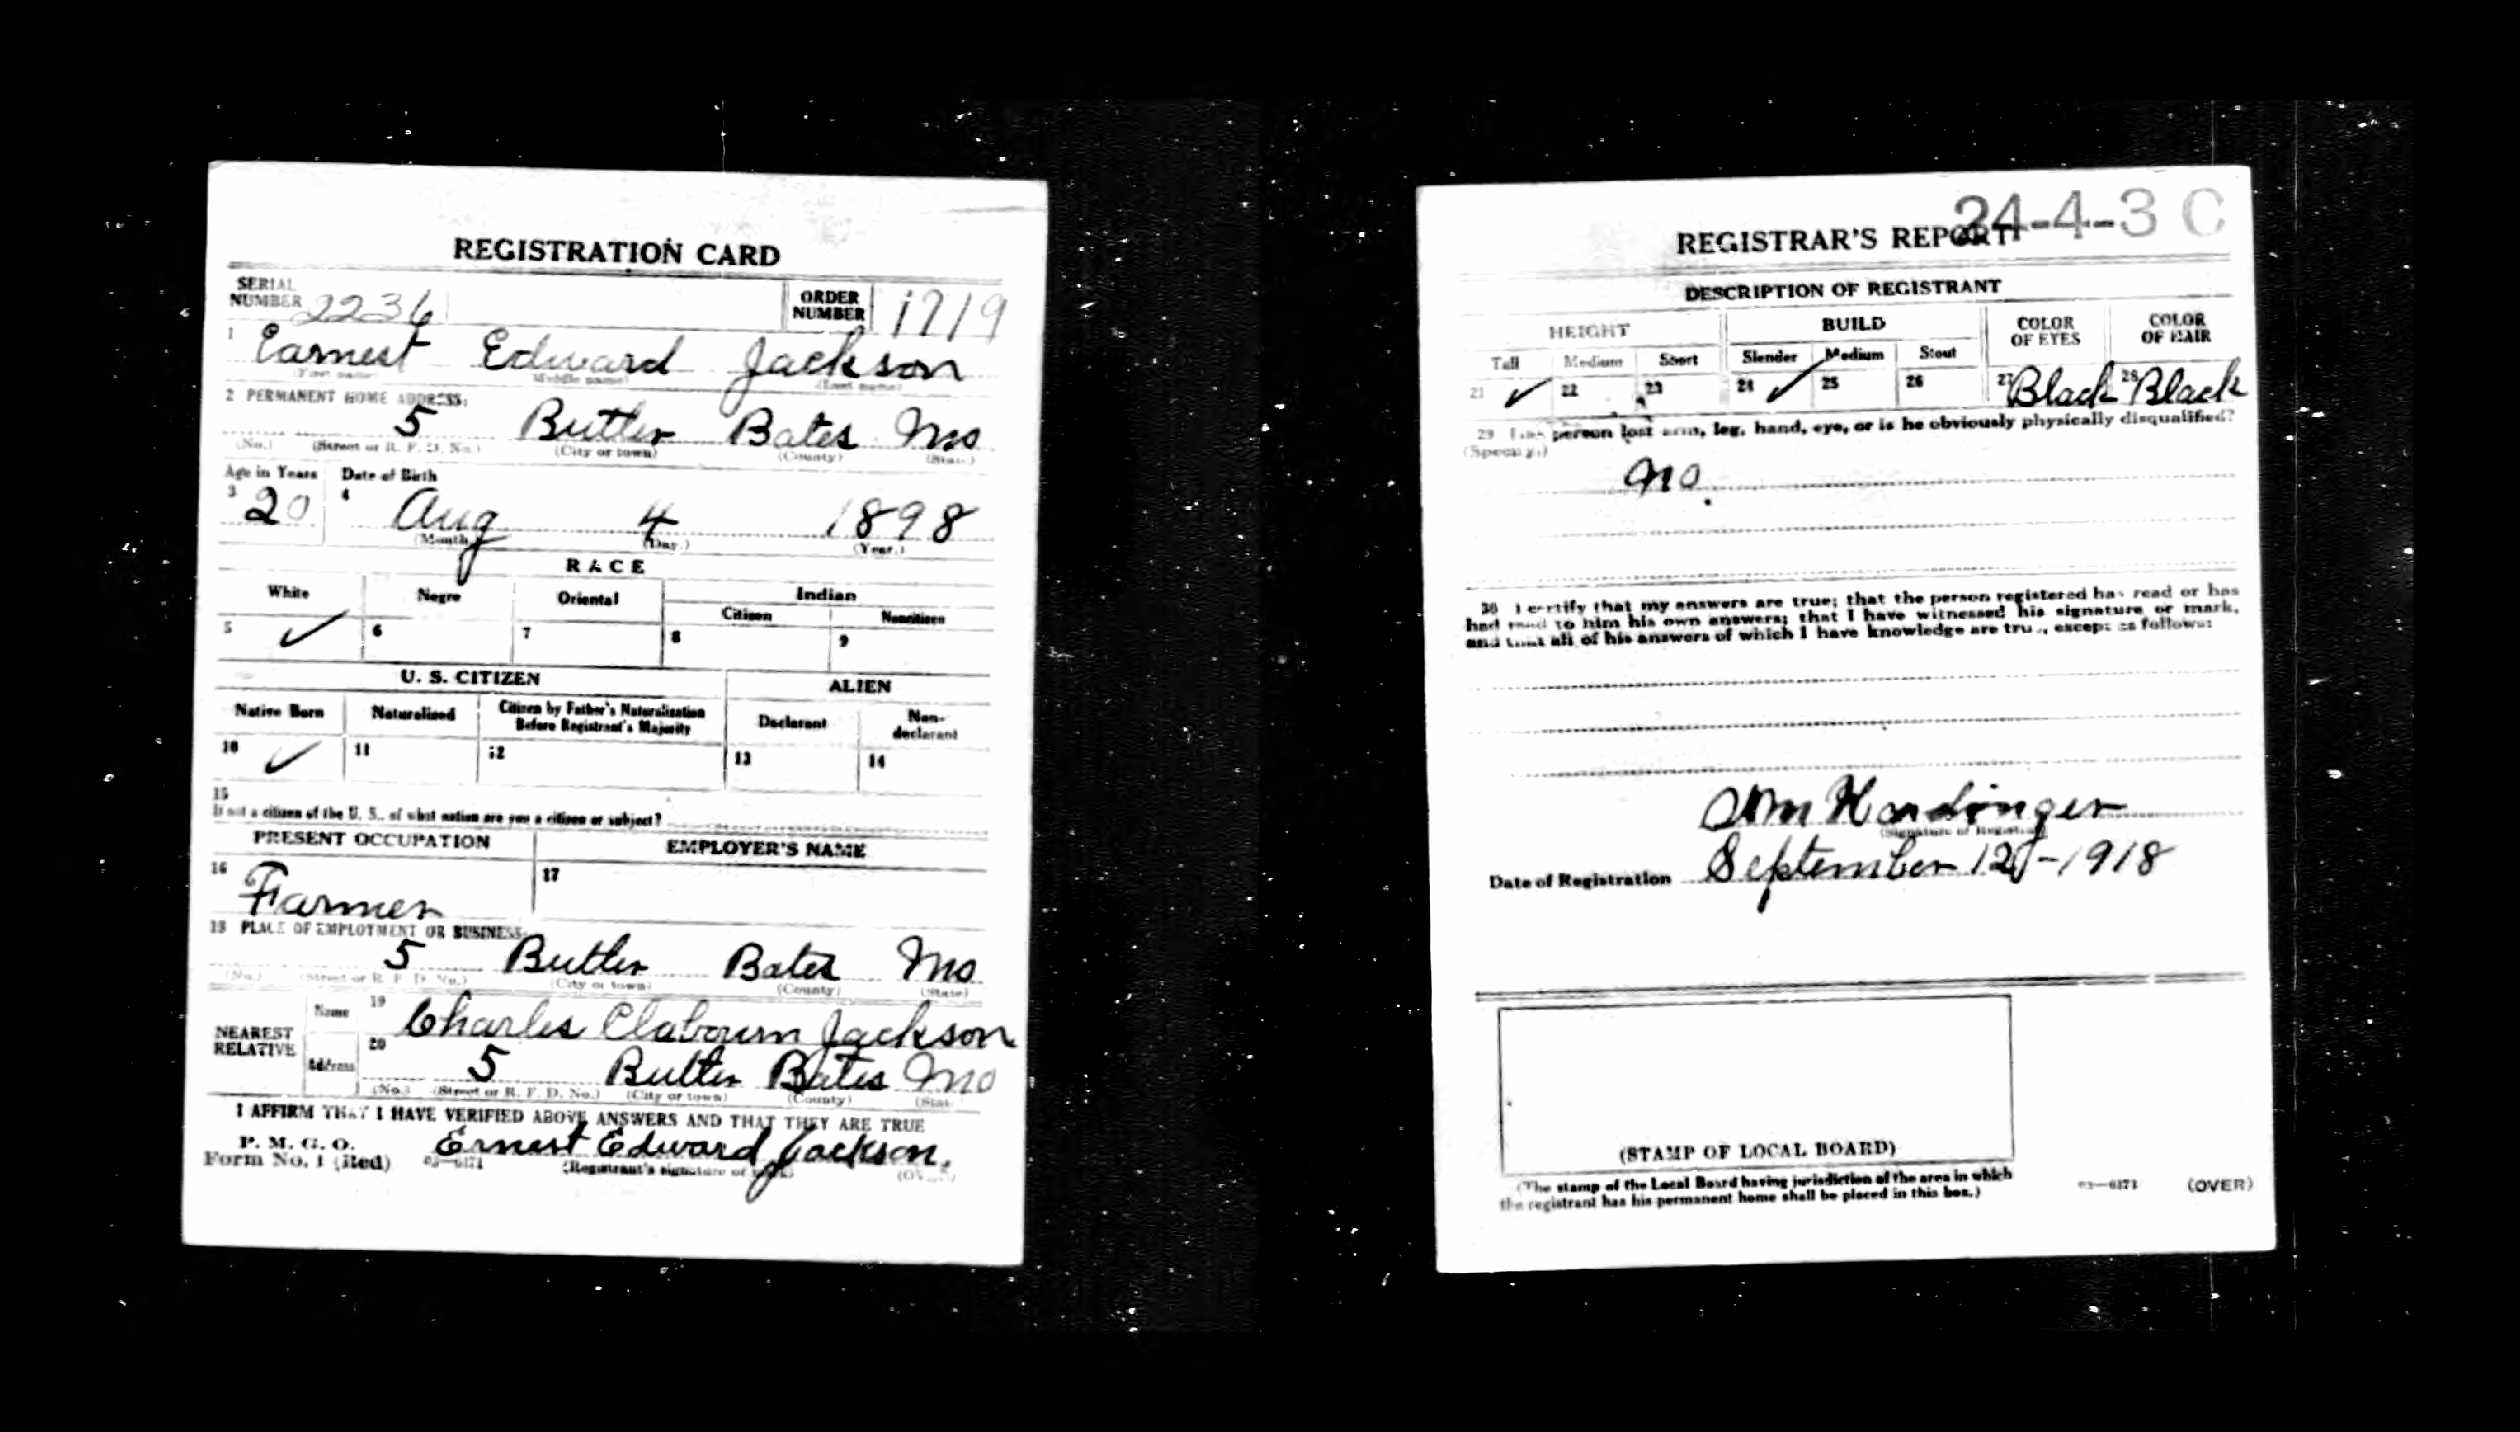 REGISTRATION CARD
SERIAL NUMBER 2236 ORDER NUMBER 1719
1 Earnest Edward Jackson
(First name) (Middle name) (Last name)
2 PERMANENT HOME ADDRESS:
5 Butler Bates Mo
(No.) (Street or R. F. D. No.) (City or town) (County) (State)
Age in Years Date of Birth
3 20 4 Aug 4 1898
(Month) (Day.) (Year.)
RACE
White Negro Oriental Indian
Citizen Noncitizen
5 ✓ 6 7 8 9
U. S. CITIZEN ALIEN
Native Born Naturalized Citizen by Father's Naturalization Before Registrant's Majority Declarant Non-declarant
10 ✓ 11 12 13 14
15
If not a citizen of the U. S., of what nation are you a citizen or subject?
PRESENT OCCUPATION EMPLOYER'S NAME
16 Farmer 17
18 PLACE OF EMPLOYMENT OR BUSINESS:
5 Butler Bates Mo
(No.) (Street or R. F. D. No.) (City or town) (County) (State)
NEAREST RELATIVE Name 19 Charles Claborn Jackson
Address 20 5 Butler Bates Mo
(No.) (Street or R. F. D. No.) (City or town) (County) (State)
I AFFIRM THAT I HAVE VERIFIED ABOVE ANSWERS AND THAT THEY ARE TRUE
P. M. G. O.
Form No. 1 (Red) 03—6171 Ernest Edward Jackson.
(Registrant's signature or mark) (OVER)
24-4-3 C
REGISTRAR'S REPORT
DESCRIPTION OF REGISTRANT
HEIGHT BUILD COLOR OF EYES COLOR OF HAIR
Tall Medium Short Slender Medium Stout
21 ✓ 22 23 24 ✓ 25 26 27 Black 28 Black
29 Has person lost arm, leg, hand, eye, or is he obviously physically disqualified?
(Specify.)
No.
30 I certify that my answers are true; that the person registered has read or has
had read to him his own answers; that I have witnessed his signature or mark,
and that all of his answers of which I have knowledge are true, except as follows:
Hardinger
(Signature of Registrar)
Date of Registration September 12-1918
(STAMP OF LOCAL BOARD)
(The stamp of the Local Board having jurisdiction of the area in which
the registrant has his permanent home shall be placed in this box.)
03—6171 (OVER)